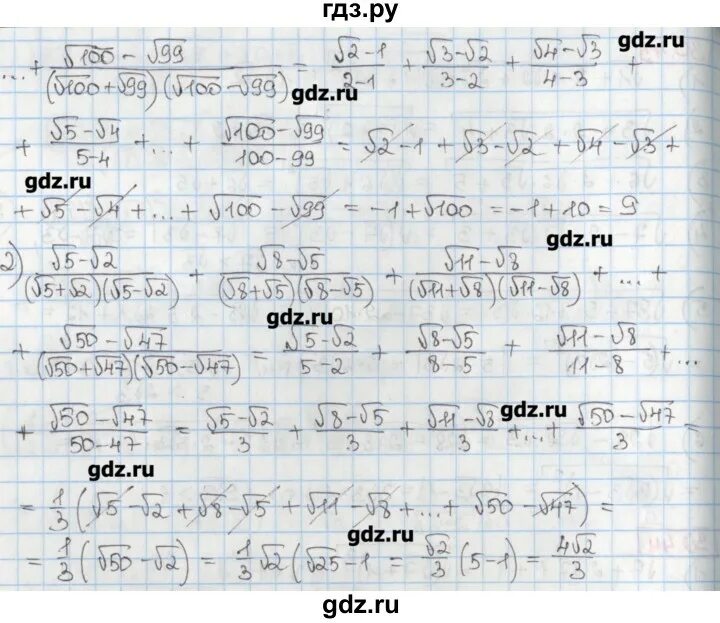 гдз.ру
... + (√100 − √99)/((√100 + √99)(√100 − √99)) = (√2 − 1)/(2 − 1) + (√3 − √2)/(3 − 2) + (√4 − √3)/(4 − 3) +
gdz.ru
gdz.ru
+ (√5 − √4)/(5 − 4) + ... + (√100 − √99)/(100 − 99) = √2 − 1 + √3 − √2 + √4 − √3 +
gdz.ru
+ √5 − √4 + ... + √100 − √99 = −1 + √100 = −1 + 10 = 9
gdz.ru
2) (√5 − √2)/((√5 + √2)(√5 − √2)) + (√8 − √5)/((√8 + √5)(√8 − √5)) + (√11 − √8)/((√11 + √8)(√11 − √8)) + ... +
gdz.ru
+ (√50 − √47)/((√50 + √47)(√50 − √47)) = (√5 − √2)/(5 − 2) + (√8 − √5)/(8 − 5) + (√11 − √8)/(11 − 8) + ...
+ (√50 − √47)/(50 − 47) = (√5 − √2)/3 + (√8 − √5)/3 + (√11 − √8)/3 + ... + (√50 − √47)/3 =
gdz.ru
gdz.ru
= 1/3 (√5 − √2 + √8 − √5 + √11 − √8 + ... + √50 − √47) =
gdz.ru
= 1/3 (√50 − √2) = 1/3 √2 (√25 − 1 = √2/3 (5 − 1) = 4√2/3
gdz.ru